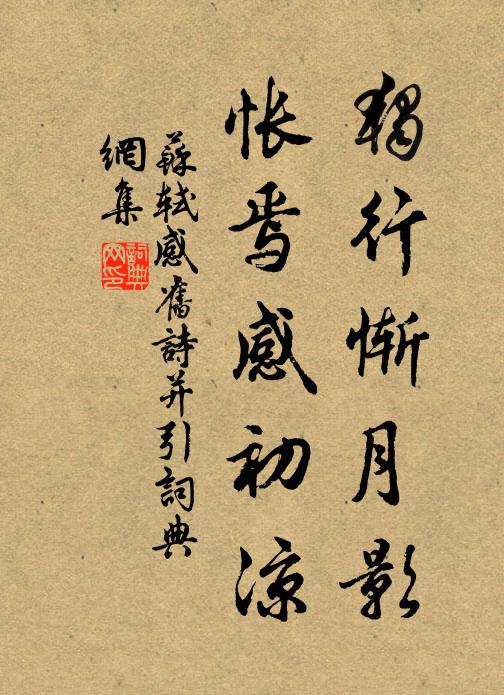 獨行慚月影
悵焉感初涼
蘇軾感舊詩并引詞典
網集
詞典網印